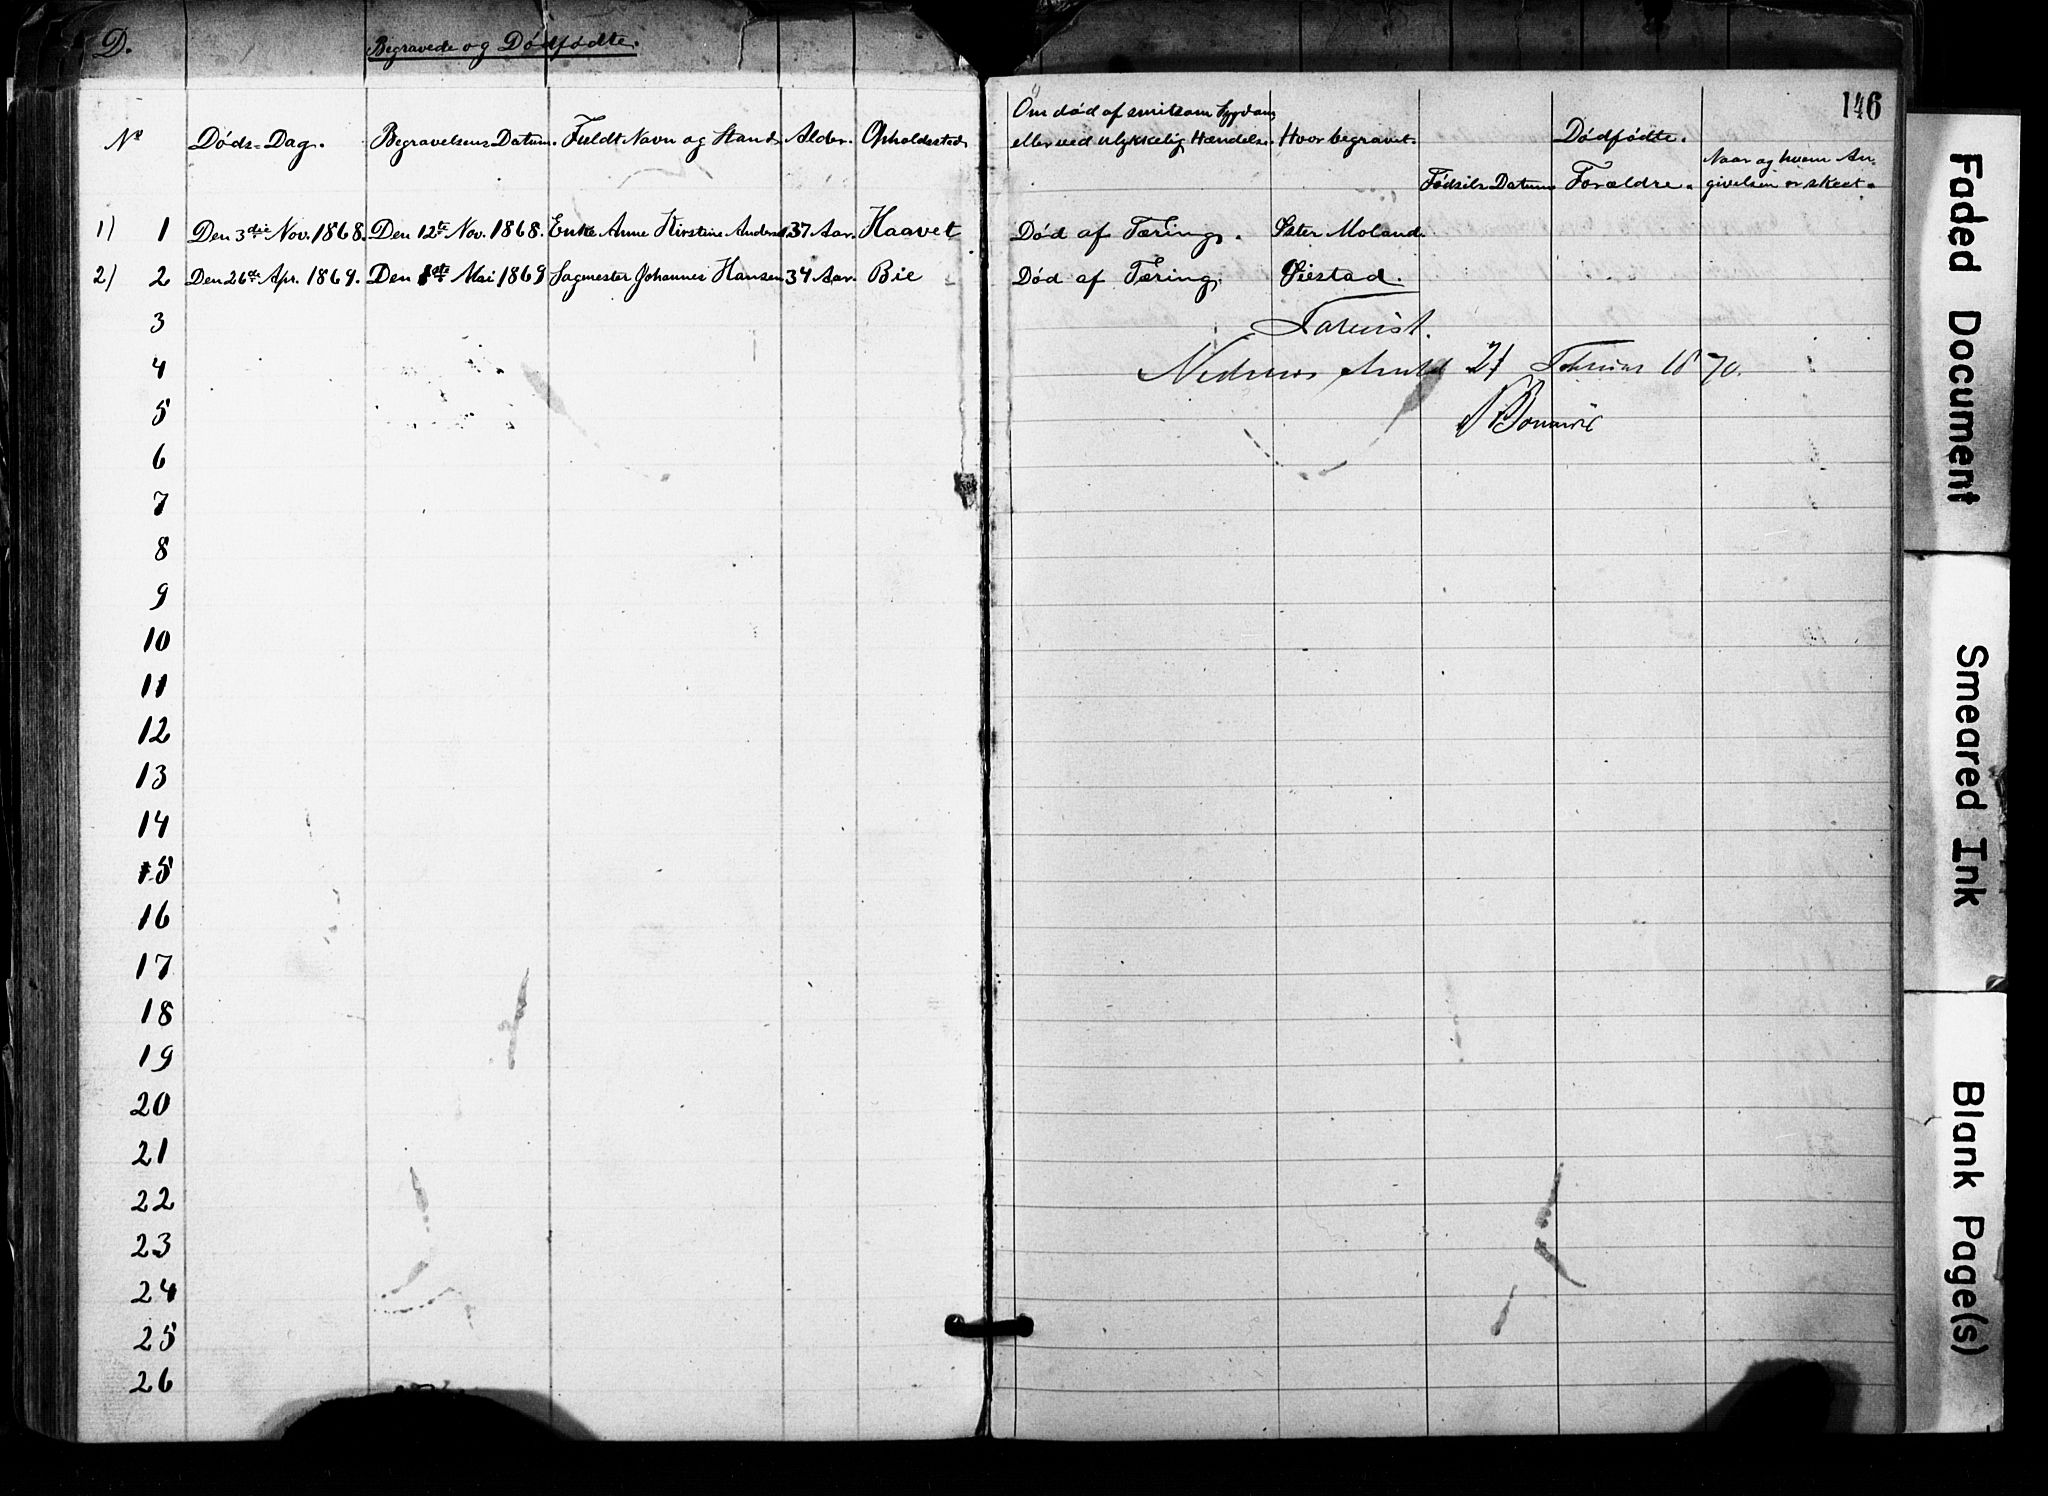 D. Begravede og Dødfødte.
146
Om død af smitsom Sygdom
No Døds-Dag. Begravelsens Datum. Fuldt Navn og Stand. Alder. Opholdssted. eller ved ulykkelig Hændelse. Hvor begravet. Dødfødte.
Fødsels Datum Forældre. Naar og hvem An-
givelsen er skeet.
1) 1 Den 3die Nov. 1868. Den 12te Nov. 1868. Enke Anne Kirstine Anders 37 Aar. Haavet Død af Tæring. Øster Moland.
2) 2 Den 26de Apr. 1869. Den 1ste Mai 1869 Sagmester Johannes Hansen 34 Aar. Bie Død af Tæring. Øiestad.
3
4 21 1870.
5
6
7
8
9
10
11
12
13
14
15
16
17
18
19
20
21
22
23
24
25
26
Faded Document
Smeared Ink
Blank Page(s)